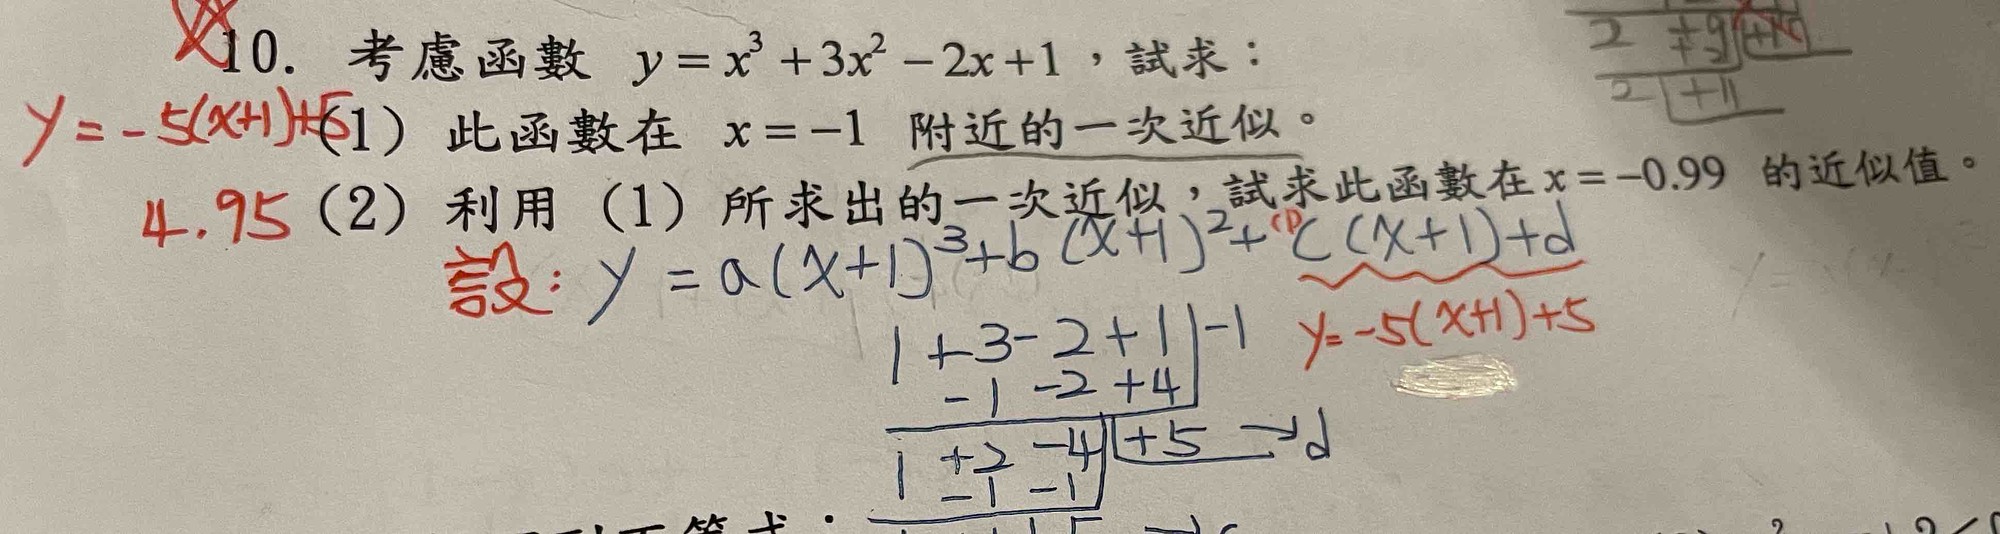 10. 考慮函數 y = x³ + 3x² − 2x + 1，試求：
y = -5(x+1)+5
(1) 此函數在 x = −1 附近的一次近似。
4.95
(2) 利用 (1) 所求出的一次近似，試求此函數在 x = −0.99 的近似值。
設: y = a(x+1)³+b(x+1)²+c(x+1)+d
(1)
y=-5(x+1)+5
1 +3 -2 +1 | -1
-1 -2 +4
1 +2 -4 | +5 → d
-1 -1
2 +9
2 +11